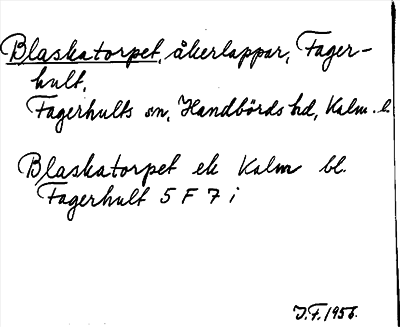 Blaskatorpet, åkerlappar, Fager-
hult,
Fagerhults sn, Handbörds hd, Kalm. l.
Blaskatorpet ek Kalm bl.
Fagerhult 5 F 7 i
J.F. 1956.